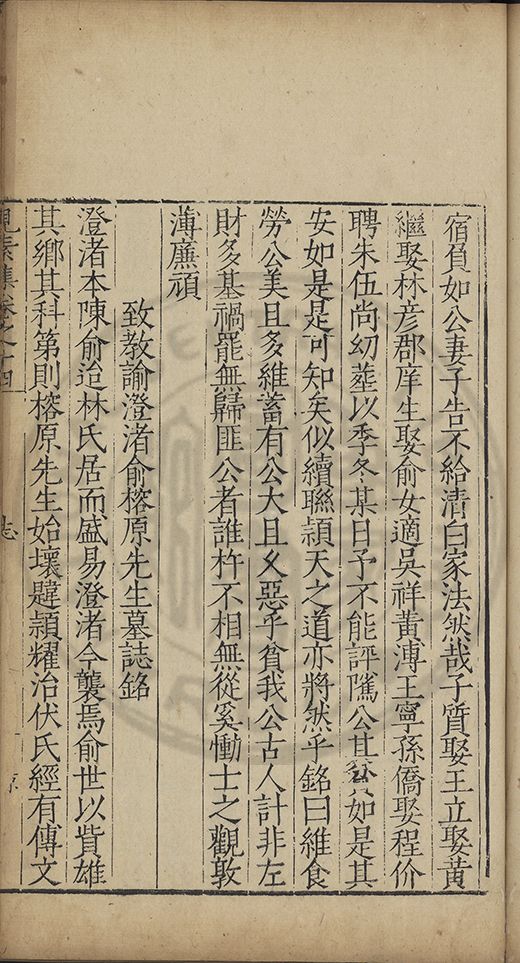 宿負如公妻子告不給清白家法然哉子質娶王立娶黃
繼娶林彥郡庠生娶俞女適吳祥黃溥王寧孫僑娶程价
聘朱伍尚幼葬以季冬某日予不能評隲公其貧如是其
安如是是可知矣似續聯頴天之道亦將然乎銘曰維食
勞公美且多維蓄有公大且父惡乎貧我公古人計非左
財多基禍罷無歸匪公者誰杵不相無從奚慟士之觀敦
薄廉頑
致教諭澄渚俞榕原先生墓誌銘
澄渚本陳俞迨林氏居而盛易澄渚今襲焉俞世以貲雄
其鄉其科第則榕原先生始壞韙頴耀治伏氏經有傳文
見素集卷之十四
志